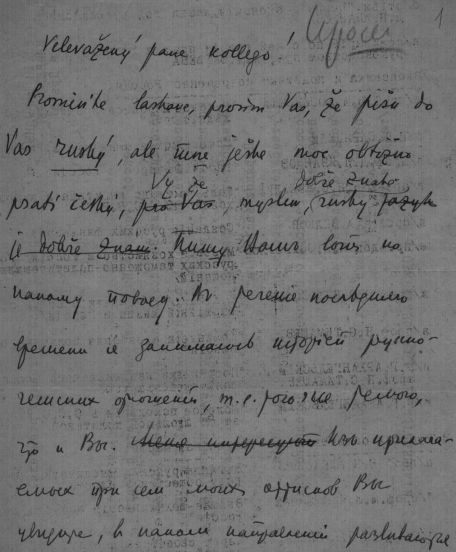 1
Velevážený pane kollego!
Promiňte laskavě, prosím Vás, že píšu do
Vas ruský, ale mně ješte moc obtižno
Vy že dobře znáte
psati český, pro Vas, myslím, ruský jazyk
je dobře znam. Пишу Вамъ вотъ по
какому поводу. Въ течение последняго
времени я занимаюсь исторіей русско-
чешских отношений, т.е. того же самого,
что и Вы. Меня интересуютъ Изъ прилага-
емых при сем моих оттисков Вы
увидите, в каком направлении развиваются